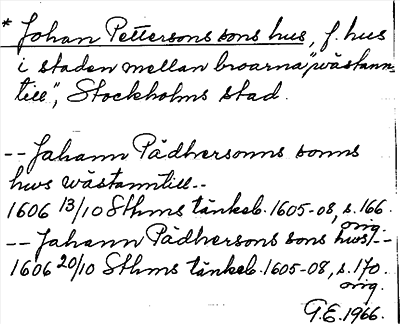 * Johan Pettersons sons hus, f. hus
i staden mellan broarna, "wästann-
till", Stockholms stad.
-- Jahann Pädhersonns sonns
hws wästanntill --
1606 13/10 Sthms tänkeb. 1605-08, s. 166.
orig.
-- Jahann Pädhersons sons hws/--
1606 20/10 Sthms tänkeb. 1605-08, s. 170.
orig.
G.E. 1966.